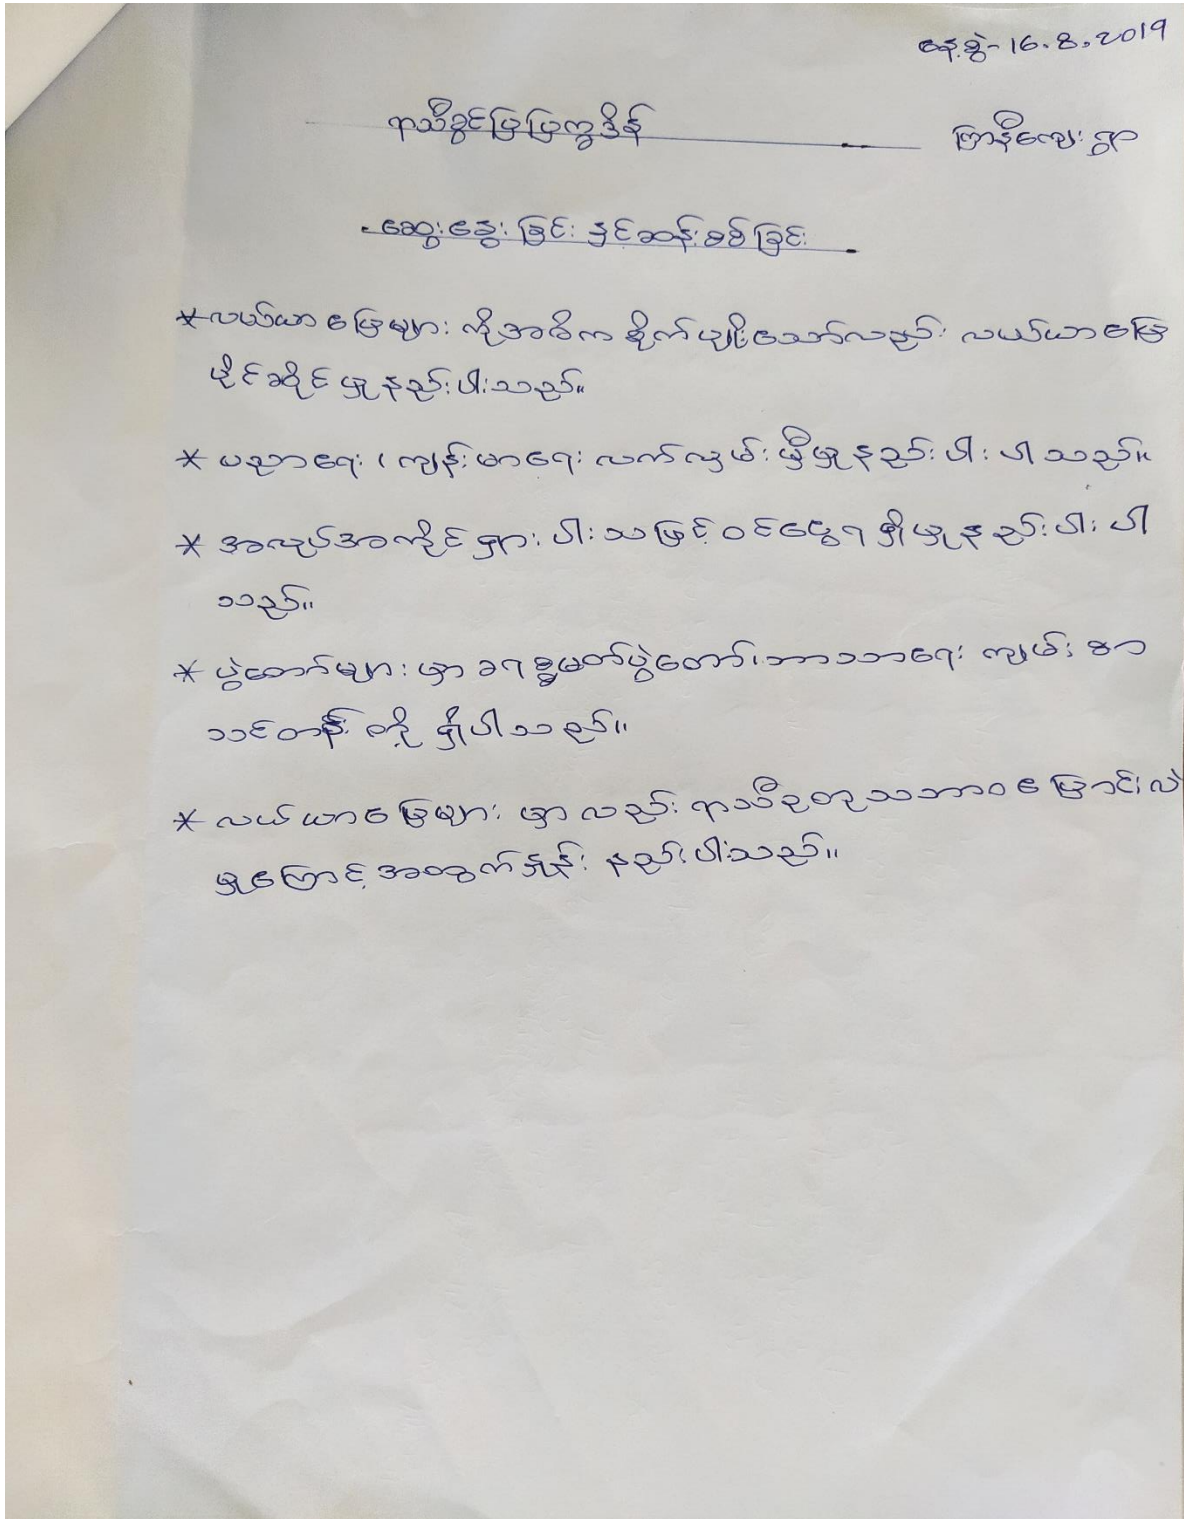 နေ့စွဲ- 16.8.2019
ရာသီခွင်ပြပြက္ခဒိန်
ကြာနီကျေးရွာ
ဆွေးနွေးခြင်း နှင့်ဆန်းစစ်ခြင်း
* လယ်ယာမြေများ ကိုအဓိက စိုက်ပျိုးသော်လည်း လယ်ယာမြေ
ပိုင်ဆိုင်မှုနည်းပါးသည်။
* ပညာရေး၊ ကျန်းမာရေး လက်လှမ်းမှီမှုနည်းပါးပါသည်။
* အလုပ်အကိုင်ရှားပါးသဖြင့်ဝင်ငွေရရှိမှုနည်းပါးပါ
သည်။
* ပွဲတော်များမှာ ခရစ္စမတ်ပွဲတော်၊ဘာသာရေး ကျမ်းစာ
သင်တန်း တို့ ရှိပါသည်။
* လယ်ယာမြေများမှာလည်း ရာသီဥတုသဘာဝပြောင်းလဲ
မှုကြောင့်အထွက်နှုန်း နည်းပါးသည်။